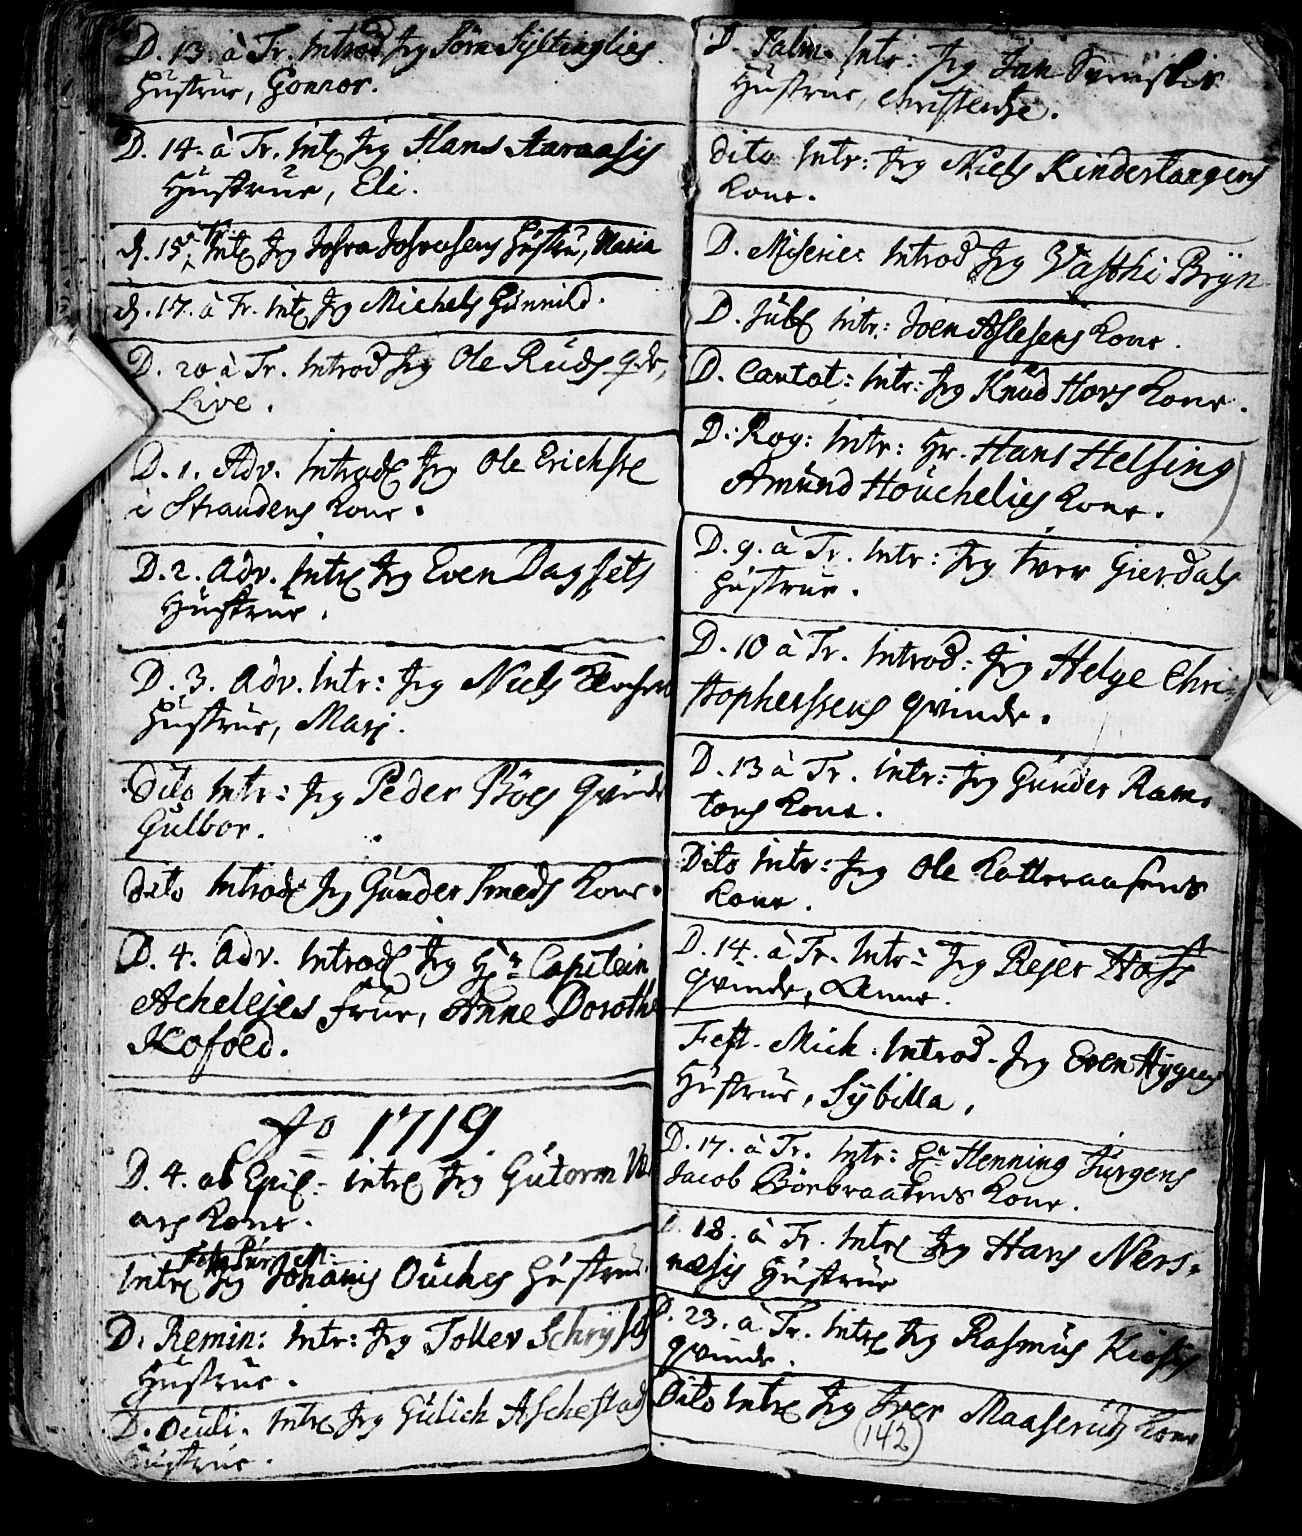 D. 13. à Tr. Introd Jeg Sörn Syltinglies
Hustrue, Gonnor.
D. 14. à Tr. Int Jeg Hans Aaraasis
Hustrue, Eli.
D. 15 à Tr. Int Jeg Hustru, Maria
D. 17. à Tr. Int Jeg Michels Gunnild.
D. 20 à Tr. Introd Jeg Ole Ruds qde,
Live.
D. 1. Adv. Introd Jeg Ole Erichsse
i Strandens Kone.
D. 2. Adv. Intr Jeg Even Dagssets
Hustrue.
D. 3. Adv. Intr: Jeg Niels
Hustrue, Mari.
Dito Intr: Jeg Peder Böes Qvinde
Gulbor.
Dito Introd Jeg Gunder Smeds Kone.
D. 4. Adv. Introd Jeg Hr Capitein
Achelejes Frue, Anne Dorothe
Kofoed.
Ao 1719.
D. 4. ab Epif: intr Jeg Gutorm
Kone.
Intr Jeg Johanis Ouches Hustrue
D. Remin: Intr: Jeg Tollev
Hustrue.
D. Oculi. Intr Jeg Gulich Aschestad
Hustrue.
D. Palm. Intr: Jeg Jan Svenskis
Hustrue, Christentze.
Dito Intr: Jeg Niels Kinderstangens
Kone.
D. Miserie: Introd Jeg Vasthi Bryn
D. Jubl Intr: Joen Aslesens Kone.
D. Cantat: Intr: Jeg Knud Hovs Kone.
D. Rog: Intr: Hr. Hans Helsing
Amund Houchelies Kone.
D. 9. à Tr. Intr: Jeg Iver Gierdals
Hustrue.
D. 10 à Tr. Introd: Jeg Helge Chri-
stopherssens Qvinde.
D. 13 à Tr. Intr: Jeg Gunder Ram-
tons Kone.
Dito Intr: Jeg Ole Katteraasens
Kone.
D. 14. à Tr. Intr: Jeg Rejer
Qvinde, Anne.
Fest. Mich. Introd. Jeg Even Hygens
Hustrue, Sybilla.
D. 17. à Tr. Intr: Hr Henning Jürgens
Jacob Börbraatens Kone.
D. 18. à Tr. Intr Jeg Hans Ners-
næsis Hustrue
D. 23. à Tr. Intr Jeg Rasmus
Qvinde.
Dito Intr Jeg Iver Maaseruds Kone
142